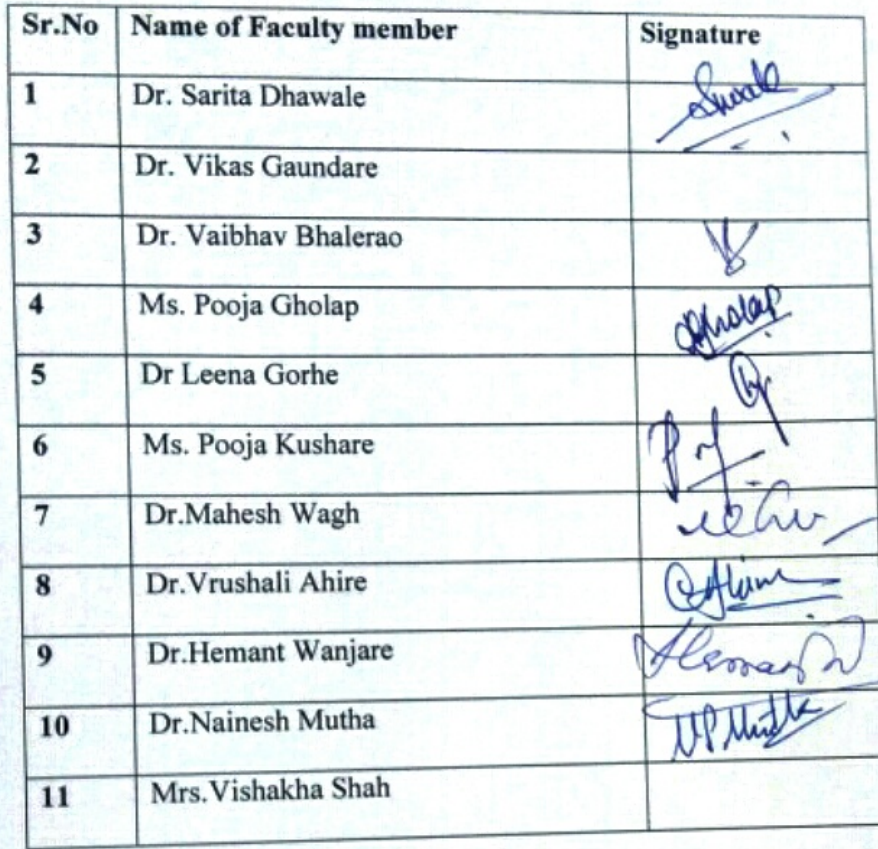 Sr.No Name of Faculty member Signature
1 Dr. Sarita Dhawale
2 Dr. Vikas Gaundare
3 Dr. Vaibhav Bhalerao
4 Ms. Pooja Gholap
5 Dr Leena Gorhe
6 Ms. Pooja Kushare
7 Dr.Mahesh Wagh
8 Dr.Vrushali Ahire
9 Dr.Hemant Wanjare
10 Dr.Nainesh Mutha
11 Mrs.Vishakha Shah